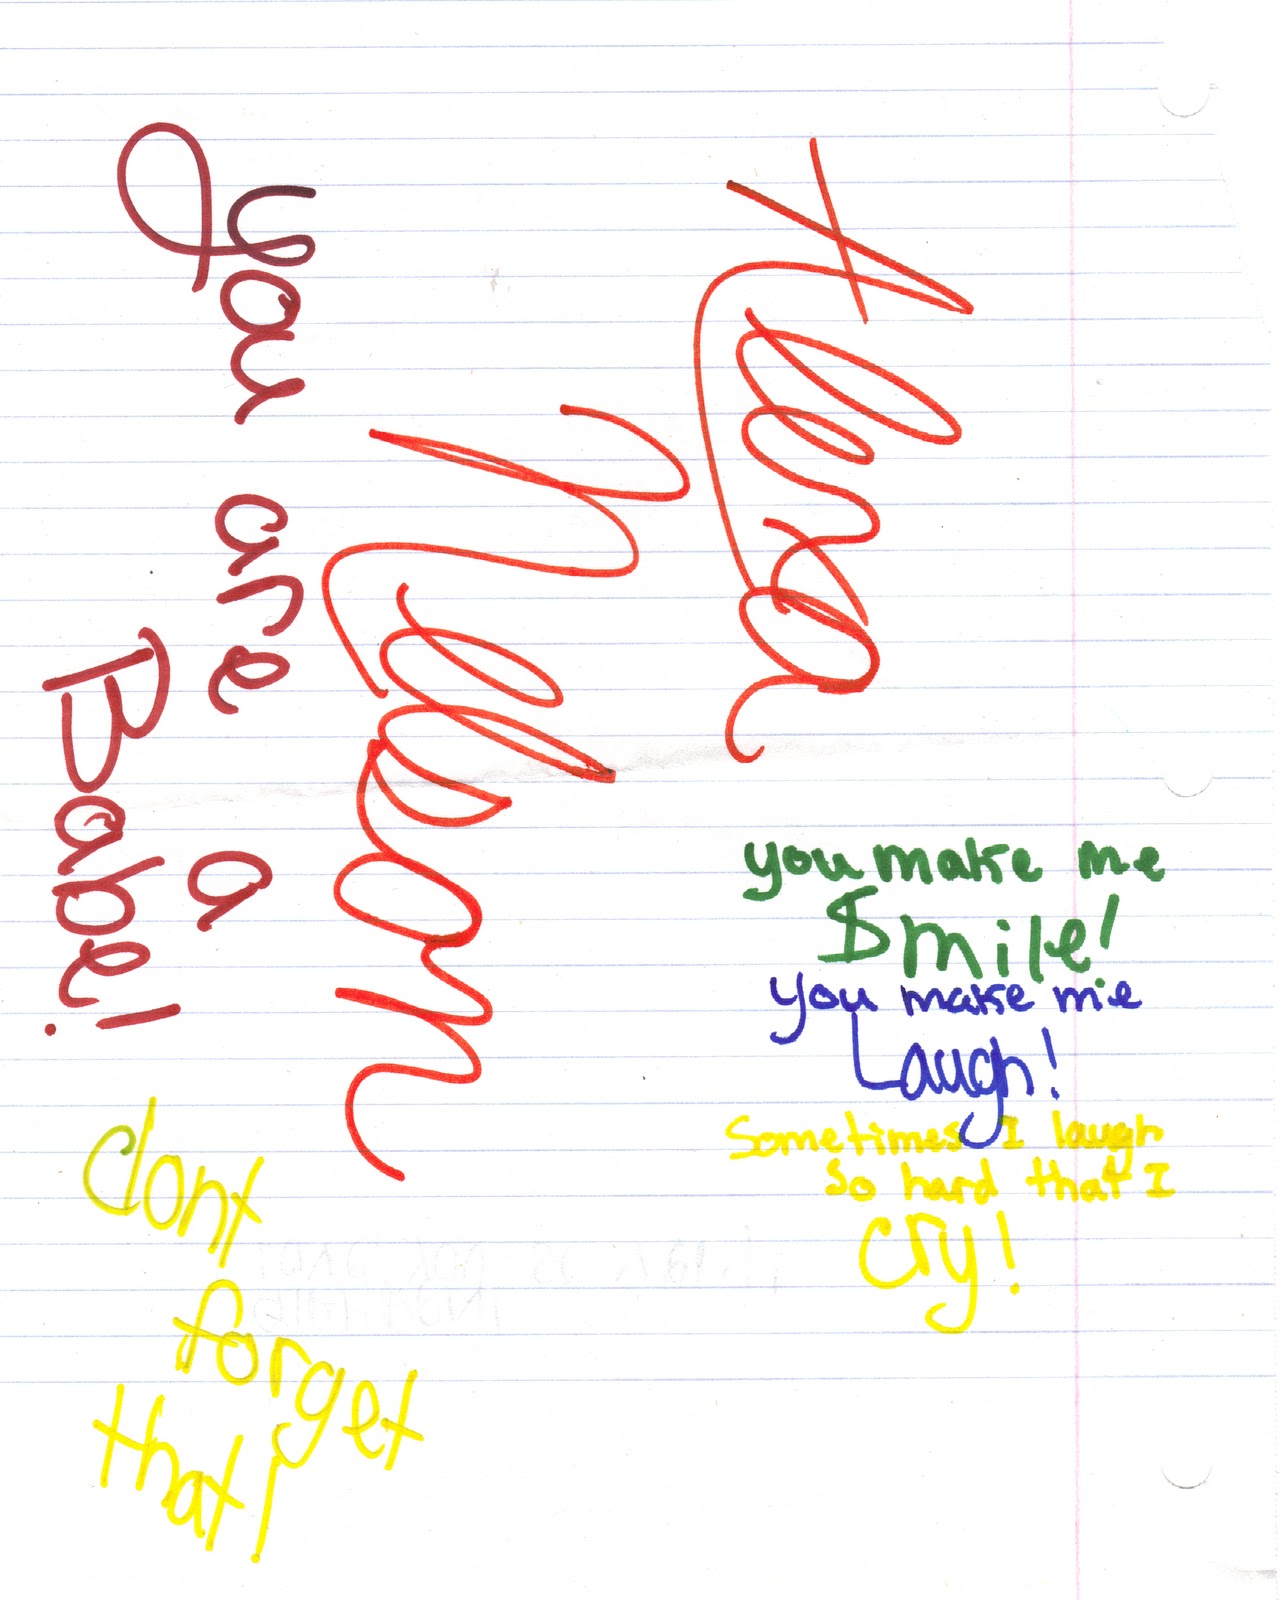 Alexa
Nelson
you are a
Babe!
dont
forget
that!
you make me
Smile!
you make me
Laugh!
Sometimes I laugh
so hard that I
cry!